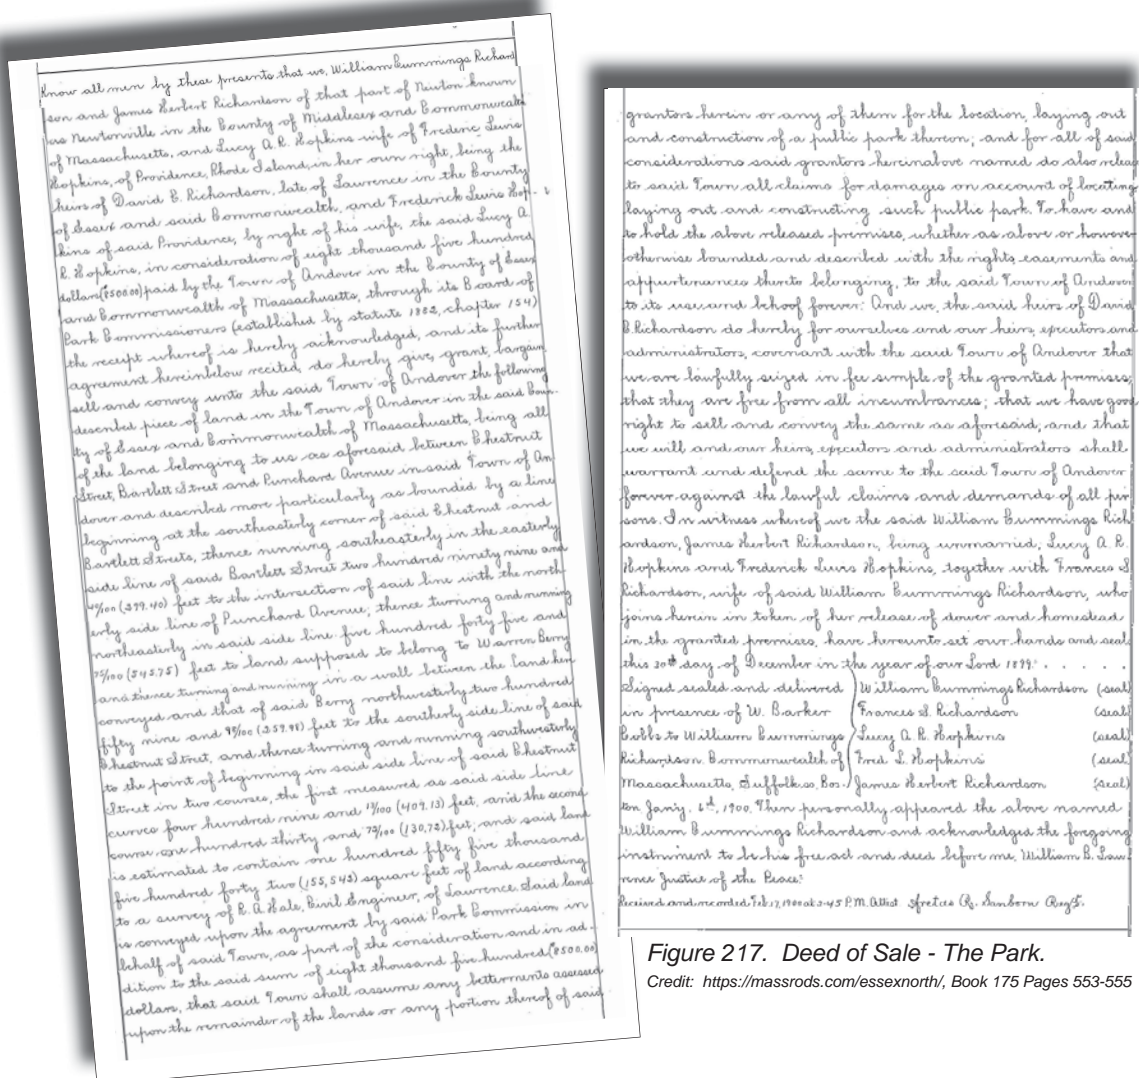 Know all men by these presents that we, William Cummings Richard
son and James Herbert Richardson of that part of Newton known
as Newtonville in the County of Middlesex and Commonwealth
of Massachusetts, and Lucy A. R. Hopkins wife of Frederic Lewis
Hopkins, of Providence, Rhode Island, in her own right, being the
heirs of David C. Richardson, late of Lawrence in the County
of Essex and said Commonwealth, and Frederick Lewis Hop-
kins of said Providence, by right of his wife, the said Lucy A.
R. Hopkins, in consideration of eight thousand five hundred
dollars ($8500.00) paid by the Town of Andover in the County of Essex
and Commonwealth of Massachusetts, through its Board of
Park Commissioners (established by statute 1882, chapter 154)
the receipt whereof is hereby acknowledged, and its further
agreement hereinbelow recited, do hereby give, grant, bargain
sell and convey unto the said Town of Andover the following
described piece of land in the Town of Andover in the said Coun-
ty of Essex and Commonwealth of Massachusetts, being all
of the land belonging to us as aforesaid between Chestnut
Street, Bartlett Street and Punchard Avenue in said Town of An
dover and described more particularly as bounded by a line
beginning at the southeasterly corner of said Chestnut and
Bartlett Streets, thence running southeasterly in the easterly
side line of said Bartlett Street two hundred ninety nine and
40/100 (299.40) feet to the intersection of said line with the north
erly side line of Punchard Avenue; thence turning and running
northeasterly in said side line five hundred forty five and
75/100 (545.75) feet to land supposed to belong to Warren Berry
and thence turning and running in a wall between the land here
conveyed and that of said Berry northwesterly two hundred
fifty nine and 98/100 (259.98) feet to the southerly side line of said
Chestnut Street, and thence turning and running southwesterly
to the point of beginning in said side line of said Chestnut
Street in two courses, the first measured as said side line
curves four hundred nine and 13/100 (409.13) feet, and the second
course one hundred thirty and 73/100 (130.73) feet; and said land
is estimated to contain one hundred fifty five thousand
five hundred forty two (155,542) square feet of land according
to a survey of R. A. Hale, Civil Engineer, of Lawrence. Said land
is conveyed upon the agreement by said Park Commission in
behalf of said Town, as part of the consideration and in ad-
dition to the said sum of eight thousand five hundred ($8500.00)
dollars, that said Town shall assume any betterments assessed
upon the remainder of the lands or any portion thereof of said
grantors herein or any of them for the location, laying out
and construction of a public park thereon; and for all of said
considerations said grantors hereinabove named do also release
to said Town all claims for damages on account of locating
laying out and constructing such public park. To have and
to hold the above released premises, whether as above or however
otherwise bounded and described with the rights, easements and
appurtenances thereto belonging, to the said Town of Andover
to its use and behoof forever. And we, the said heirs of David
C. Richardson do hereby for ourselves and our heirs, executors and
administrators, covenant with the said Town of Andover that
we are lawfully seized in fee simple of the granted premises;
that they are free from all incumbrances; that we have good
right to sell and convey the same as aforesaid, and that
we will and our heirs, executors and administrators shall
warrant and defend the same to the said Town of Andover
forever against the lawful claims and demands of all per
sons. In witness whereof we the said William Cummings Rich
ardson, James Herbert Richardson, being unmarried, Lucy A. R.
Hopkins and Frederick Lewis Hopkins, together with Frances S
Richardson, wife of said William Cummings Richardson, who
joins herein in token of her release of dower and homestead
in the granted premises, have hereunto set our hands and seals
this 30th day of December in the year of our Lord 1899. . . . . .
Signed sealed and delivered William Cummings Richardson (seal)
in presence of W. Barker Frances S. Richardson (seal)
Cobbs to William Cummings Lucy A. R. Hopkins (seal)
Richardson. Commonwealth of Fred L. Hopkins (seal)
Massachusetts, Suffolk ss. Bos. James Herbert Richardson (seal)
ton Jan'y. 6th, 1900. Then personally appeared the above named
William Cummings Richardson and acknowledged the foregoing
instrument to be his free act and deed before me, William B. Law
rence Justice of the Peace.
Received and recorded Feb. 17, 1900 at 3-45 P.M. Attest Sanborn Regr.
Figure 217. Deed of Sale - The Park.
Credit: https://massrods.com/essexnorth/, Book 175 Pages 553-555